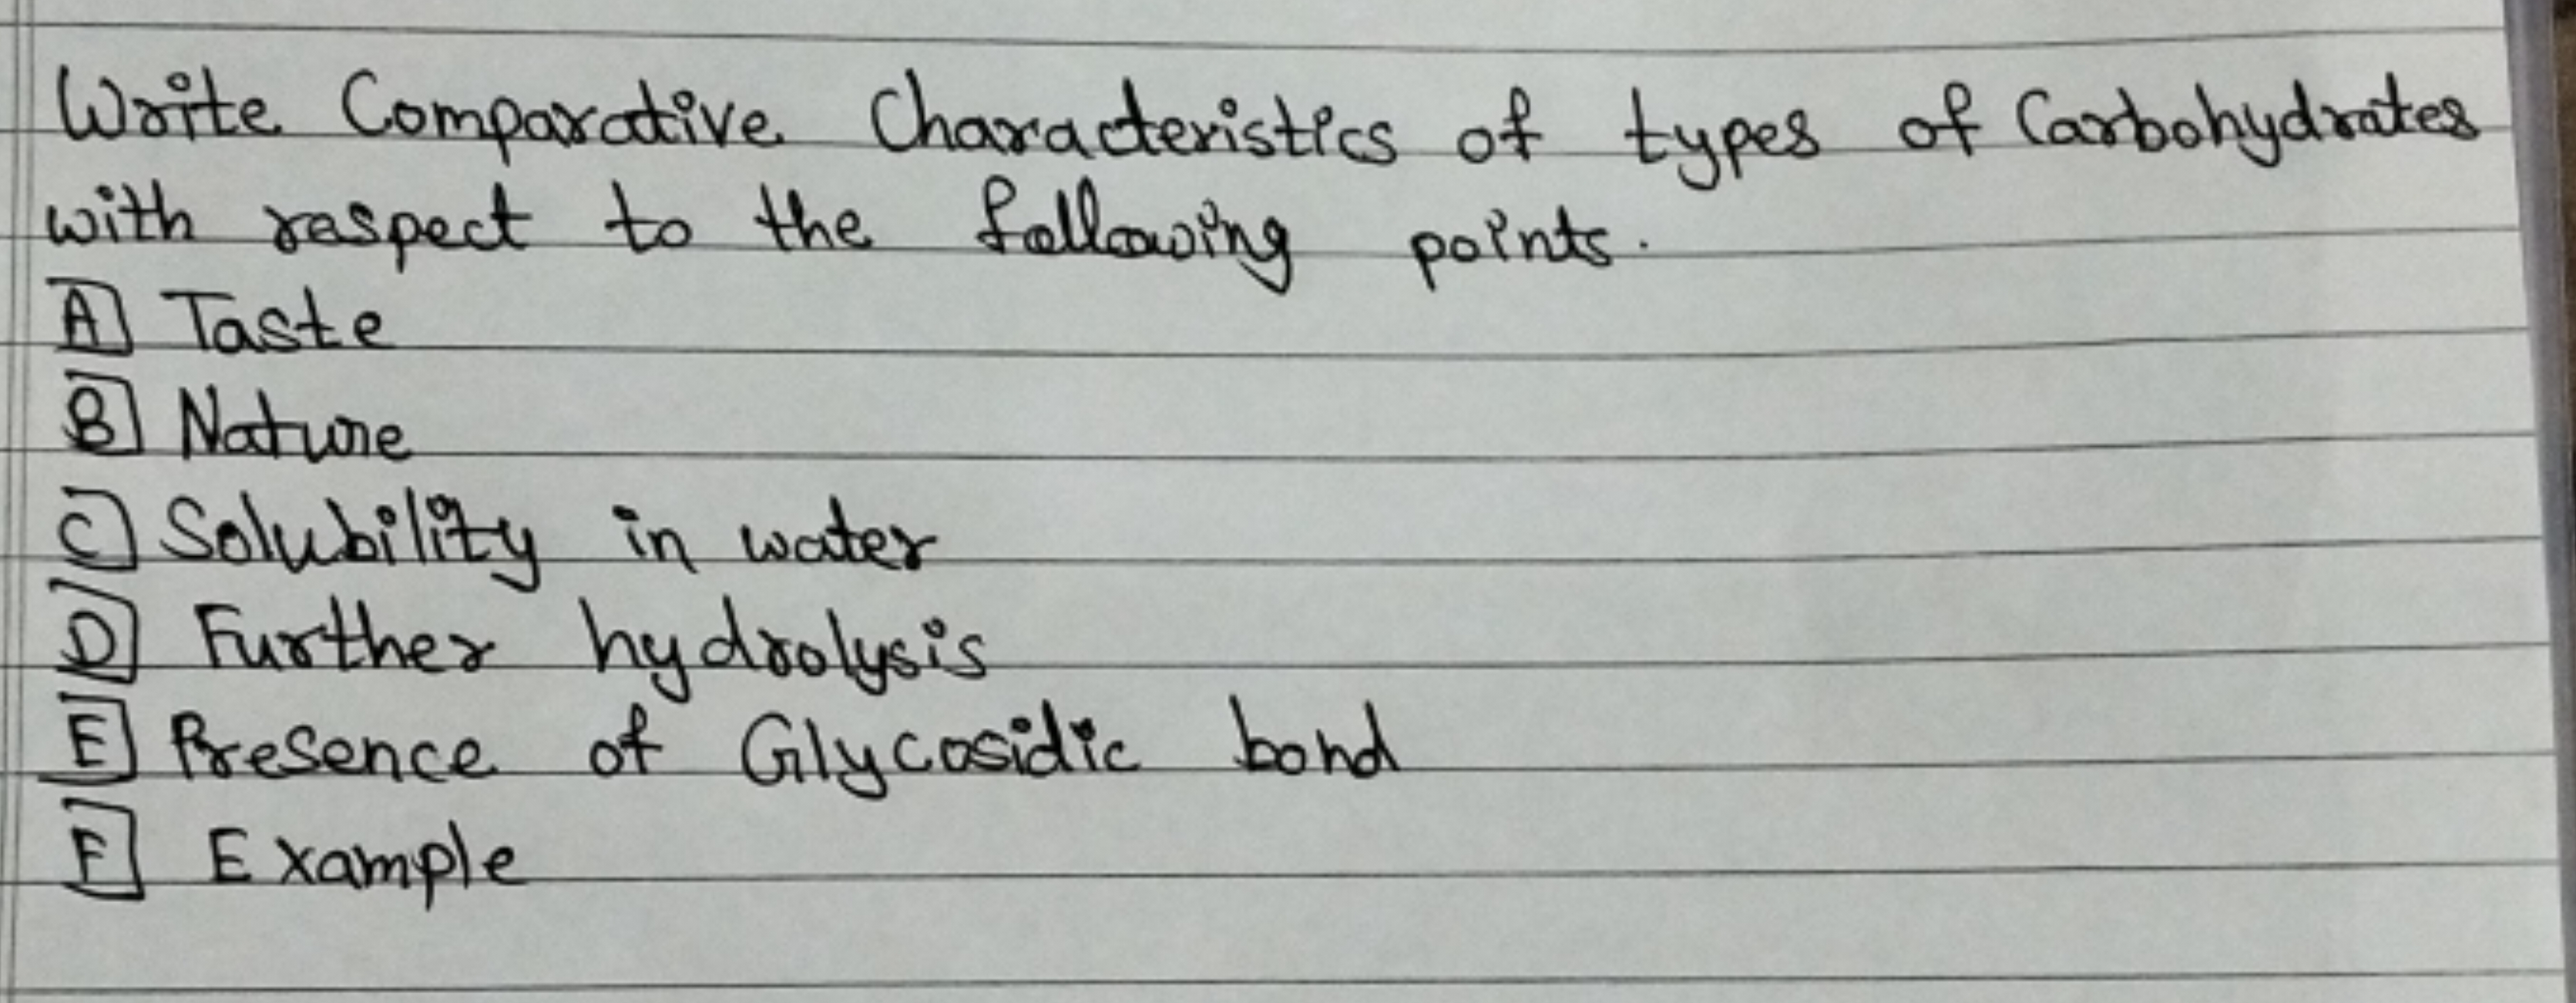 Write Comparative Characteristics of types of Carbohydrates
with respect to the following points.
A] Taste
B] Nature
C] Solubility in water
D] Further hydrolysis
E] Presence of Glycosidic bond
F] Example